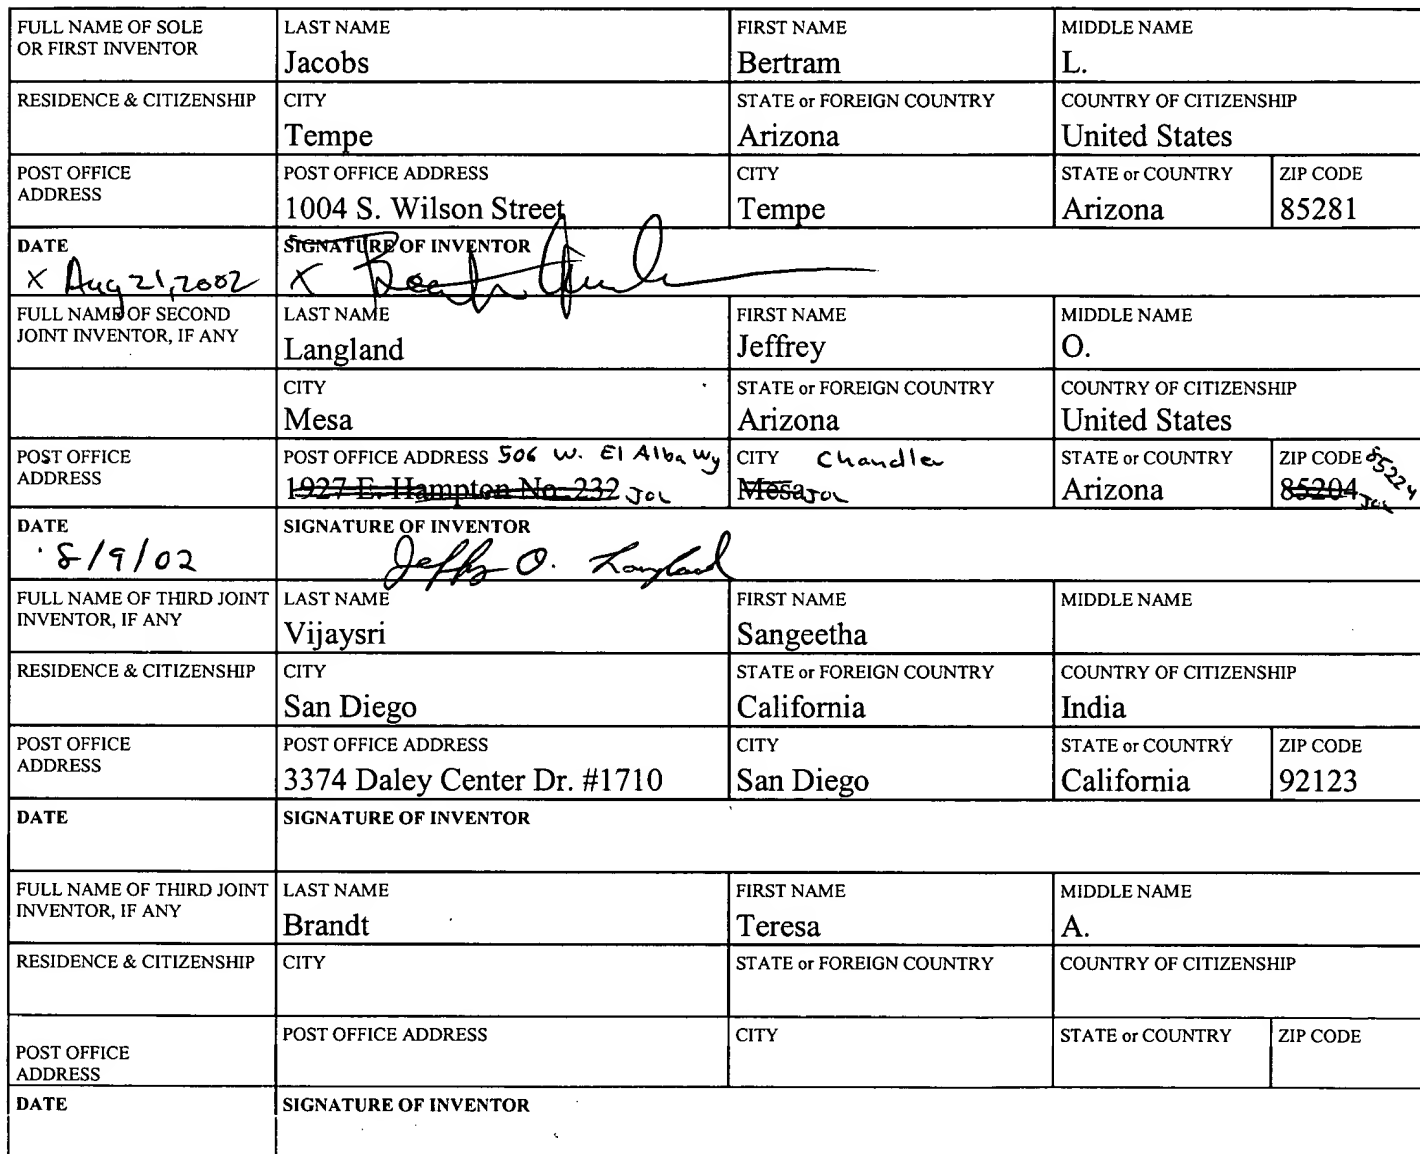 FULL NAME OF SOLE
OR FIRST INVENTOR
LAST NAME
Jacobs
FIRST NAME
Bertram
MIDDLE NAME
L.
RESIDENCE & CITIZENSHIP
CITY
Tempe
STATE or FOREIGN COUNTRY
Arizona
COUNTRY OF CITIZENSHIP
United States
POST OFFICE
ADDRESS
POST OFFICE ADDRESS
1004 S. Wilson Street
CITY
Tempe
STATE or COUNTRY
Arizona
ZIP CODE
85281
DATE
X Aug 21, 2002
SIGNATURE OF INVENTOR
X
FULL NAME OF SECOND
JOINT INVENTOR, IF ANY
LAST NAME
Langland
FIRST NAME
Jeffrey
MIDDLE NAME
O.
CITY
Mesa
STATE or FOREIGN COUNTRY
Arizona
COUNTRY OF CITIZENSHIP
United States
POST OFFICE
ADDRESS
POST OFFICE ADDRESS 506 W. El Alba Wy
1927 E. Hampton No. 232 JOL
CITY Chandler
Mesa JOL
STATE or COUNTRY
Arizona
ZIP CODE 85224
85204 JOL
DATE
8/9/02
SIGNATURE OF INVENTOR
Jeffrey O. Langland
FULL NAME OF THIRD JOINT
INVENTOR, IF ANY
LAST NAME
Vijaysri
FIRST NAME
Sangeetha
MIDDLE NAME
RESIDENCE & CITIZENSHIP
CITY
San Diego
STATE or FOREIGN COUNTRY
California
COUNTRY OF CITIZENSHIP
India
POST OFFICE
ADDRESS
POST OFFICE ADDRESS
3374 Daley Center Dr. #1710
CITY
San Diego
STATE or COUNTRY
California
ZIP CODE
92123
DATE
SIGNATURE OF INVENTOR
FULL NAME OF THIRD JOINT
INVENTOR, IF ANY
LAST NAME
Brandt
FIRST NAME
Teresa
MIDDLE NAME
A.
RESIDENCE & CITIZENSHIP
CITY
STATE or FOREIGN COUNTRY
COUNTRY OF CITIZENSHIP
POST OFFICE
ADDRESS
POST OFFICE ADDRESS
CITY
STATE or COUNTRY
ZIP CODE
DATE
SIGNATURE OF INVENTOR